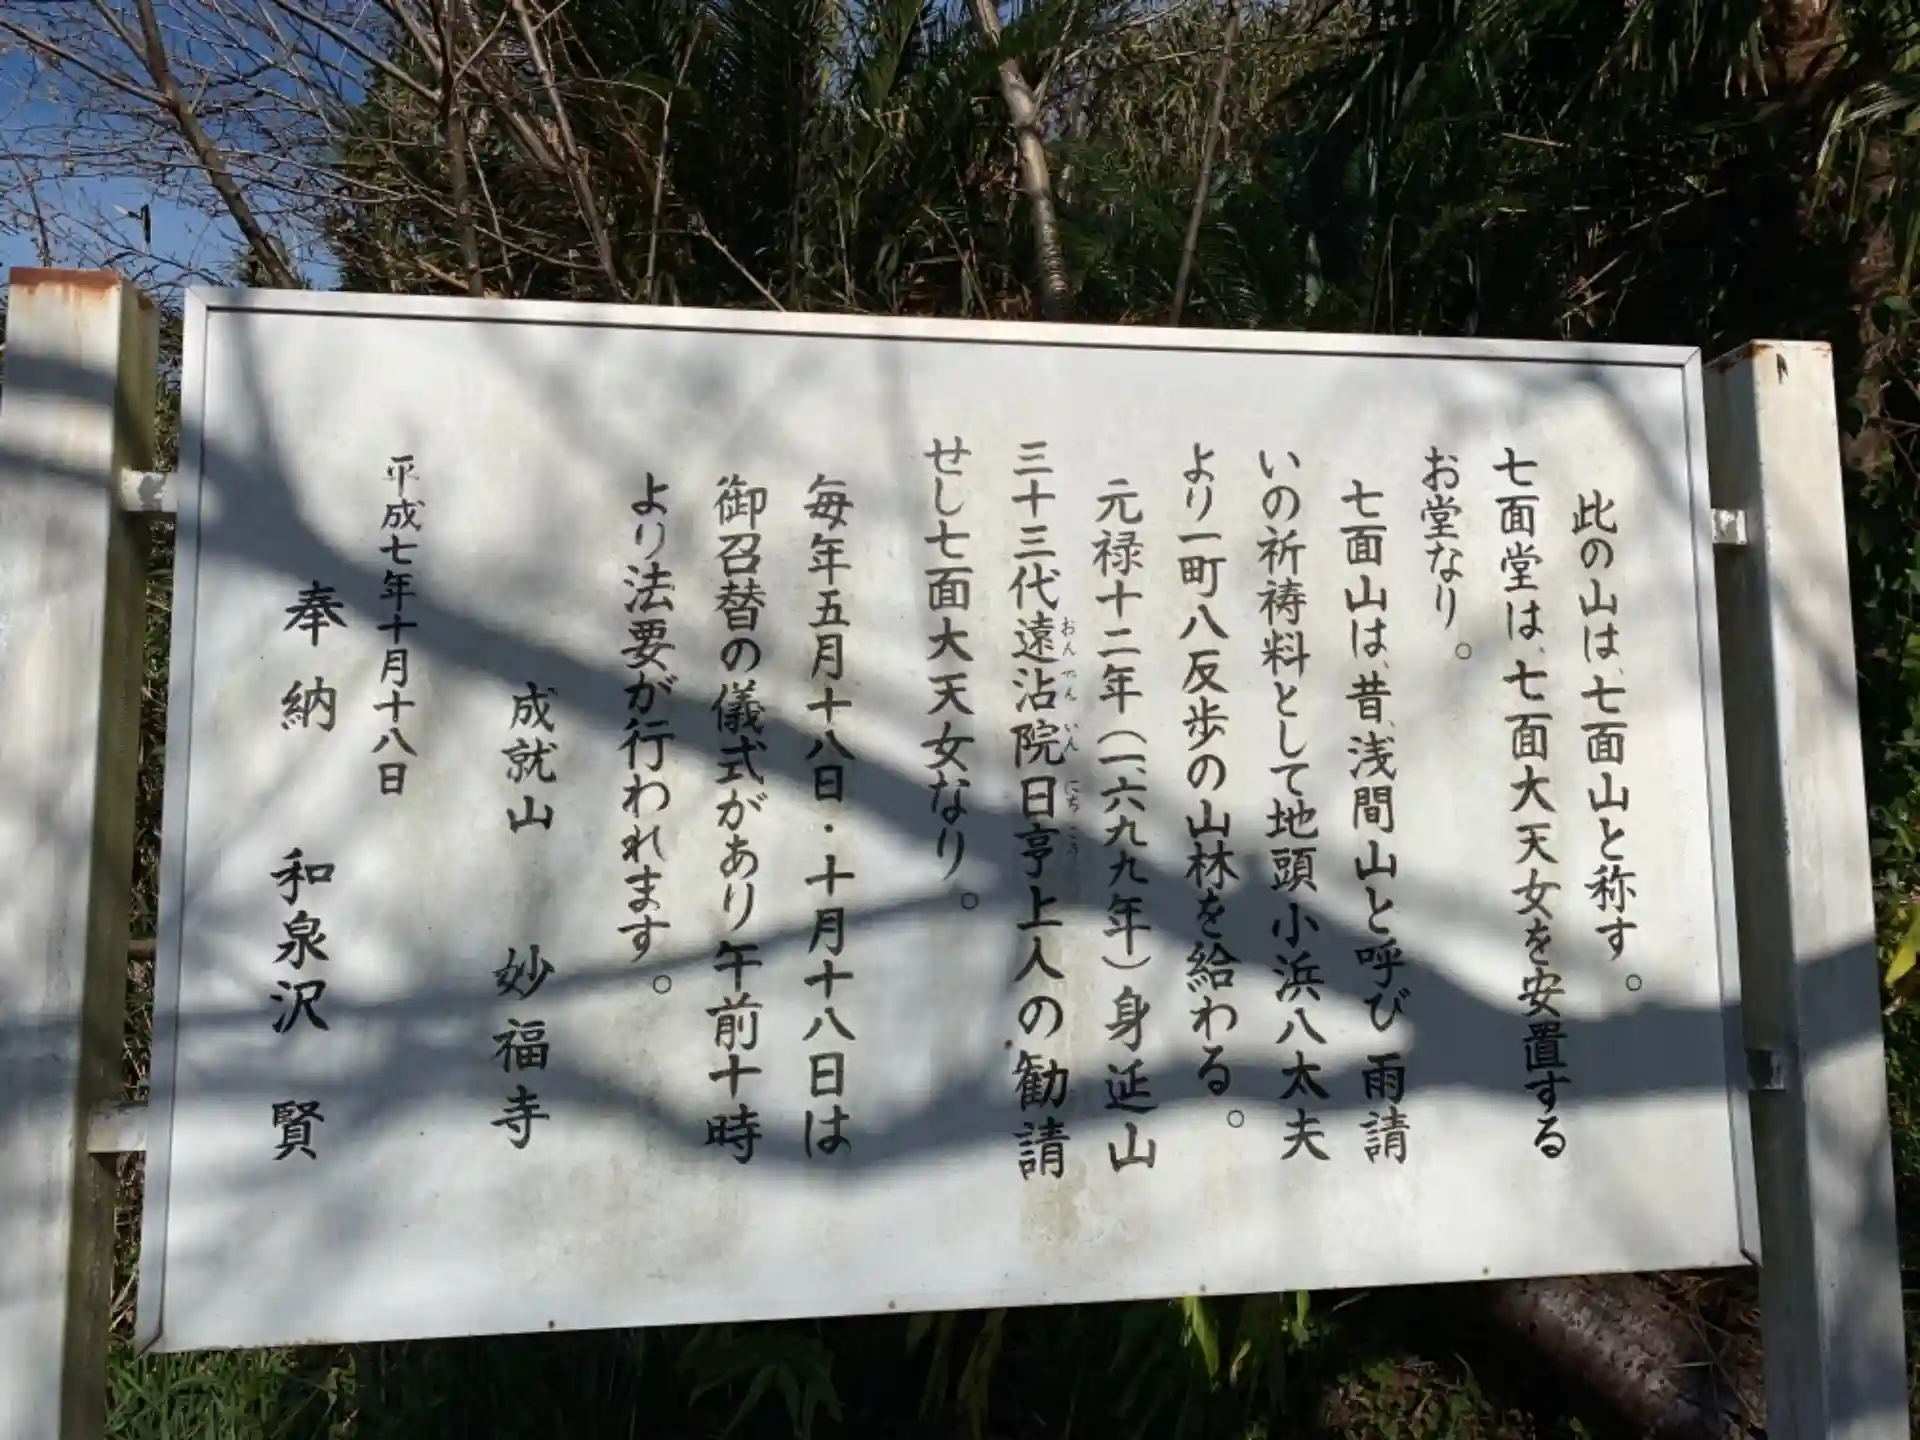 此の山は、七面山と称す。
七面堂は、七面大天女を安置する
お堂なり。
七面山は、昔、浅間山と呼び雨請
いの祈祷料として地頭小浜八太夫
より一町八反歩の山林を給わる。
元禄十二年（一、六九九年）身延山
三十三代遠沾院日亨上人の勧請
おんでんいんにちこう
せし七面大天女なり。
毎年五月十八日・十月十八日は
御召替の儀式があり午前十時
より法要が行われます。
成就山 妙福寺
平成七年十月十八日
奉納 和泉沢 賢